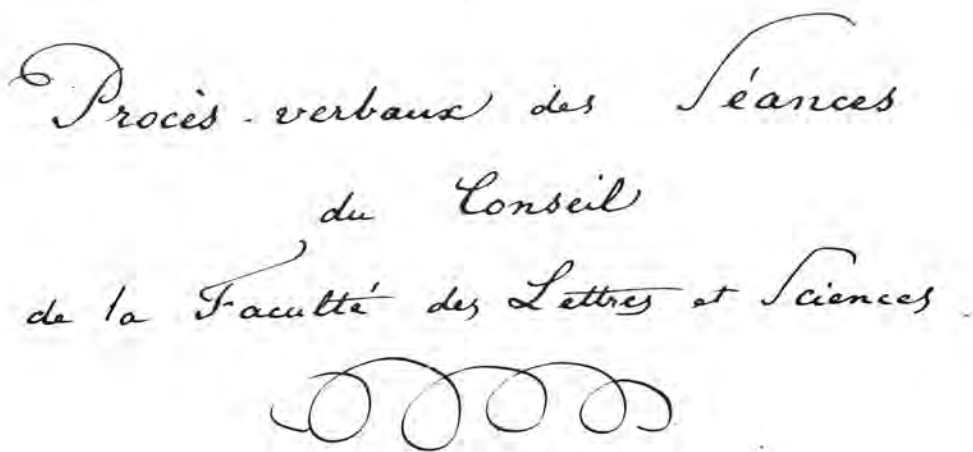 Procès-verbaux des Séances
du Conseil
de la Faculté des Lettres et Sciences.